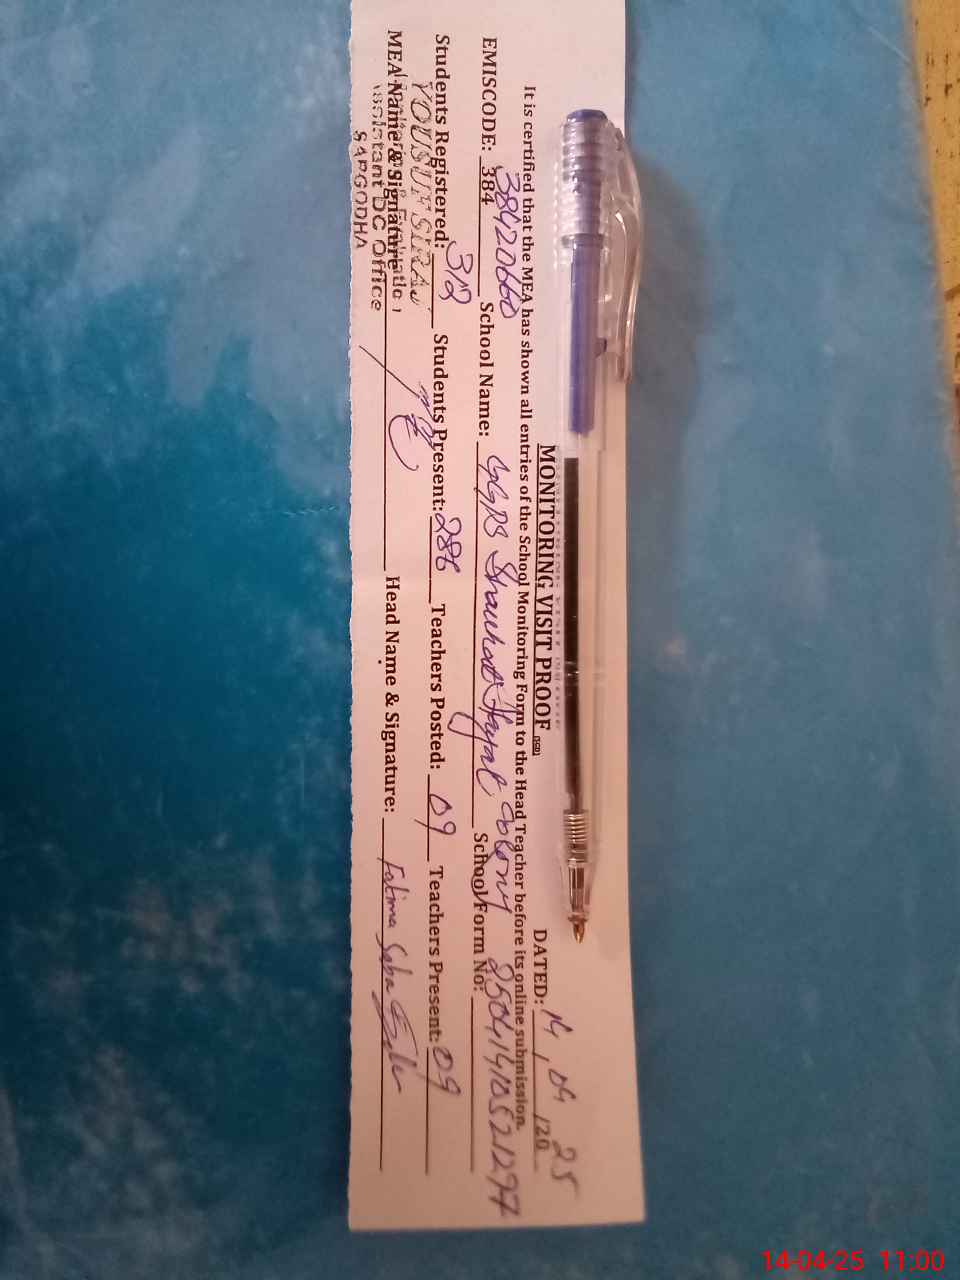 MONITORING VISIT PROOF (SGD)
DATED: 14 / 04 /20 25
It is certified that the MEA has shown all entries of the School Monitoring Form to the Head Teacher before its online submission.
EMISCODE: 384 38420660 School Name: GGPS Shaukat Hayat Colony School Form No: 2504141052129
Students Registered: 312 Students Present: 286 Teachers Posted: 09 Teachers Present: 09
YOUSUF SIRAJ
MEA Name & Signature Head Name & Signature: Fatima Saba
Assistant DC Office
SARGODHA
14-04-25 11:00